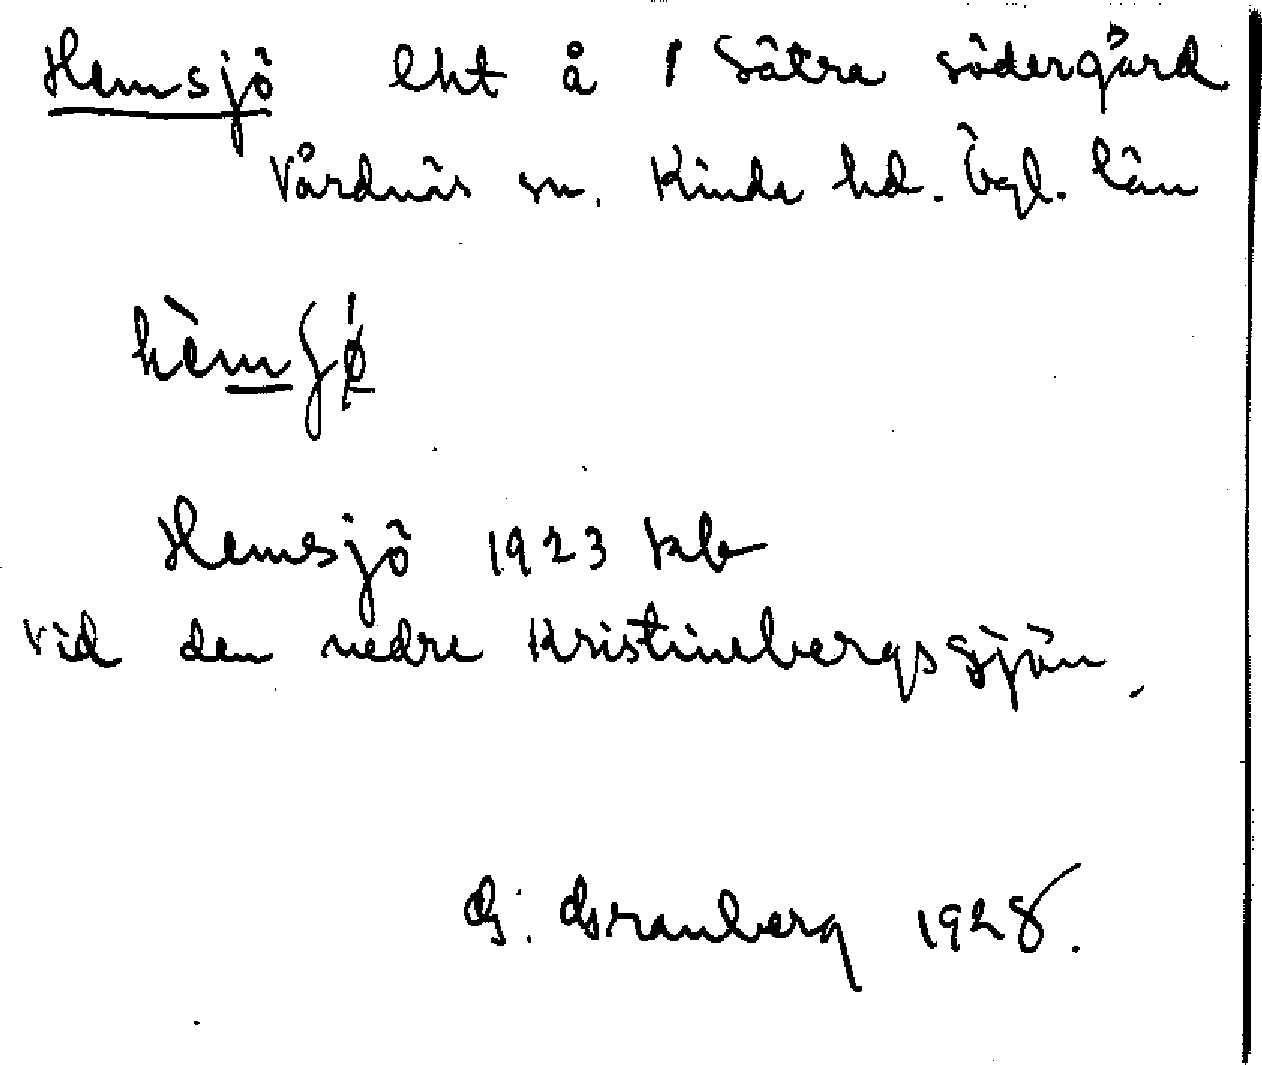 Hemsjö lht å 1 Sätra södergård
Vårdnäs sn. Kinda hd. Ögl. län
Hemsjö 1923 kb
vid den nedre Kristinebergssjön.
G. Granberg 1928.